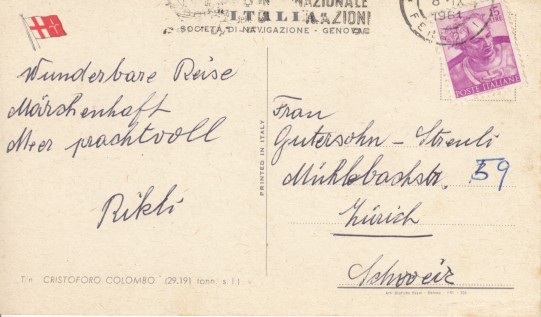 NAZIONALE
ITALIA
AZIONI
SOCIETÀ DI NAVIGAZIONE - GENOVA
1961
15
POSTE ITALIANE
Wunderbare Reise
Märchenhaft
Meer prachtvoll
Rikli
PRINTED IN ITALY
Frau
Gutersohn - Streuli
Mühlebachstr. 59
Zürich
Schweiz
T/n CRISTOFORO COLOMBO (29.191 tonn. s. l.)